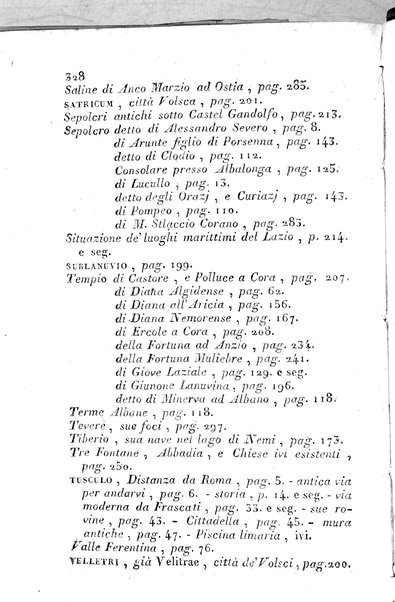 328
Saline di Anco Marzio ad Ostia, pag. 285.
SATRICUM, città Volsca, pag. 201.
Sepolcri antichi sotto Castel Gandolfo, pag. 213.
Sepolcro detto di Alessandro Severo, pag. 8.
di Arunte figlio di Porsenna, pag. 143
detto di Clodio, pag. 112.
Consolare presso Albalonga, pag. 125.
di Lucullo, pag. 13.
detto degli Orazj, e Curiazj, pag. 143.
di Pompeo, pag. 110.
di M. Stlaccio Corano, pag. 283.
Situazione de' luoghi marittimi del Lazio, p. 214.
e seg.
SUBLANUVIO, pag. 199.
Tempio di Castore, e Polluce a Cora, pag. 207.
di Diana Algidense, pag. 62.
di Diana all'Aricia, pag. 156.
di Diana Nemorense, pag. 167.
di Ercole a Cora, pag. 208.
della Fortuna ad Anzio, pag. 234.
della Fortuna Muliebre, pag. 241.
di Giove Laziale, pag. 129. e seg.
di Giunone Lanuvina, pag. 196.
detto di Minerva ad Albano, pag. 118.
Terme Albane, pag. 118.
Tevere, sue foci, pag. 297.
Tiberio, sua nave nel lago di Nemi, pag. 173.
Tre Fontane, Abbadia, e Chiese ivi esistenti,
pag. 250.
TUSCULO, Distanza da Roma, pag. 5. - antica via
per andarvi, pag. 6. - storia, p. 14. e seg. - via
moderna da Frascati, pag. 33. e seg. - sue ro-
vine, pag. 43. - Cittadella, pag. 45. - mura
antiche, pag. 47. - Piscina limaria, ivi.
Valle Ferentina, pag. 76.
VELLETRI, già Velitrae, città de' Volsci, pag. 200.